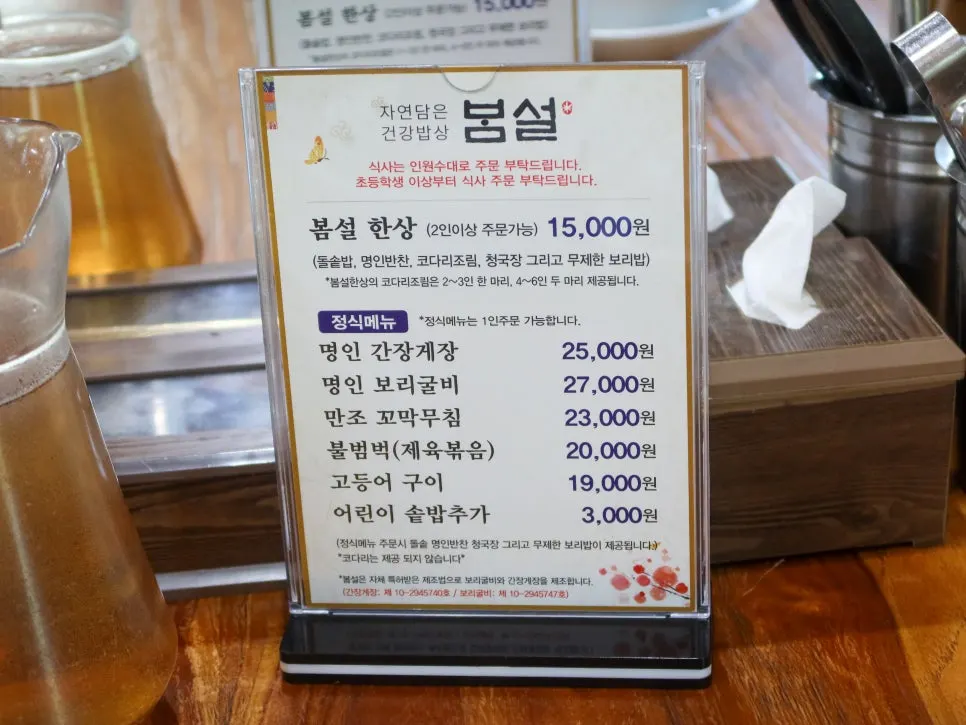 봄설 한상 (2인이상 주문가능) 15,000원
자연담은
건강밥상 봄설
식사는 인원수대로 주문 부탁드립니다.
초등학생 이상부터 식사 주문 부탁드립니다.
봄설 한상 (2인이상 주문가능) 15,000원
(돌솥밥, 명인반찬, 코다리조림, 청국장 그리고 무제한 보리밥)
*봄설한상의 코다리조림은 2~3인 한 마리, 4~6인 두 마리 제공됩니다.
정식메뉴 *정식메뉴는 1인주문 가능합니다.
명인 간장게장 25,000원
명인 보리굴비 27,000원
만조 꼬막무침 23,000원
불범벅(제육볶음) 20,000원
고등어 구이 19,000원
어린이 솥밥추가 3,000원
(정식메뉴 주문시 돌솥 명인반찬 청국장 그리고 무제한 보리밥이 제공됩니다.)
*코다리는 제공 되지 않습니다*
*봄설은 자체 특허받은 제조법으로 보리굴비와 간장게장을 제조합니다.
(간장게장: 제 10-2945740호 / 보리굴비: 제 10-2945747호)